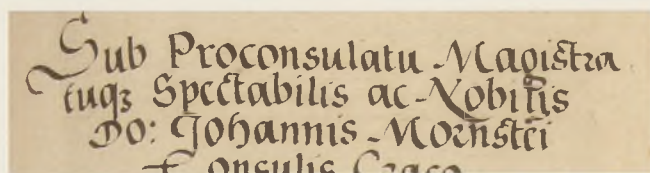 Sub Proconsulatu Magistra
tuqꝫ Spectabilis ac Nobilis
Do: Johannis Mornstei
Consulis Craco